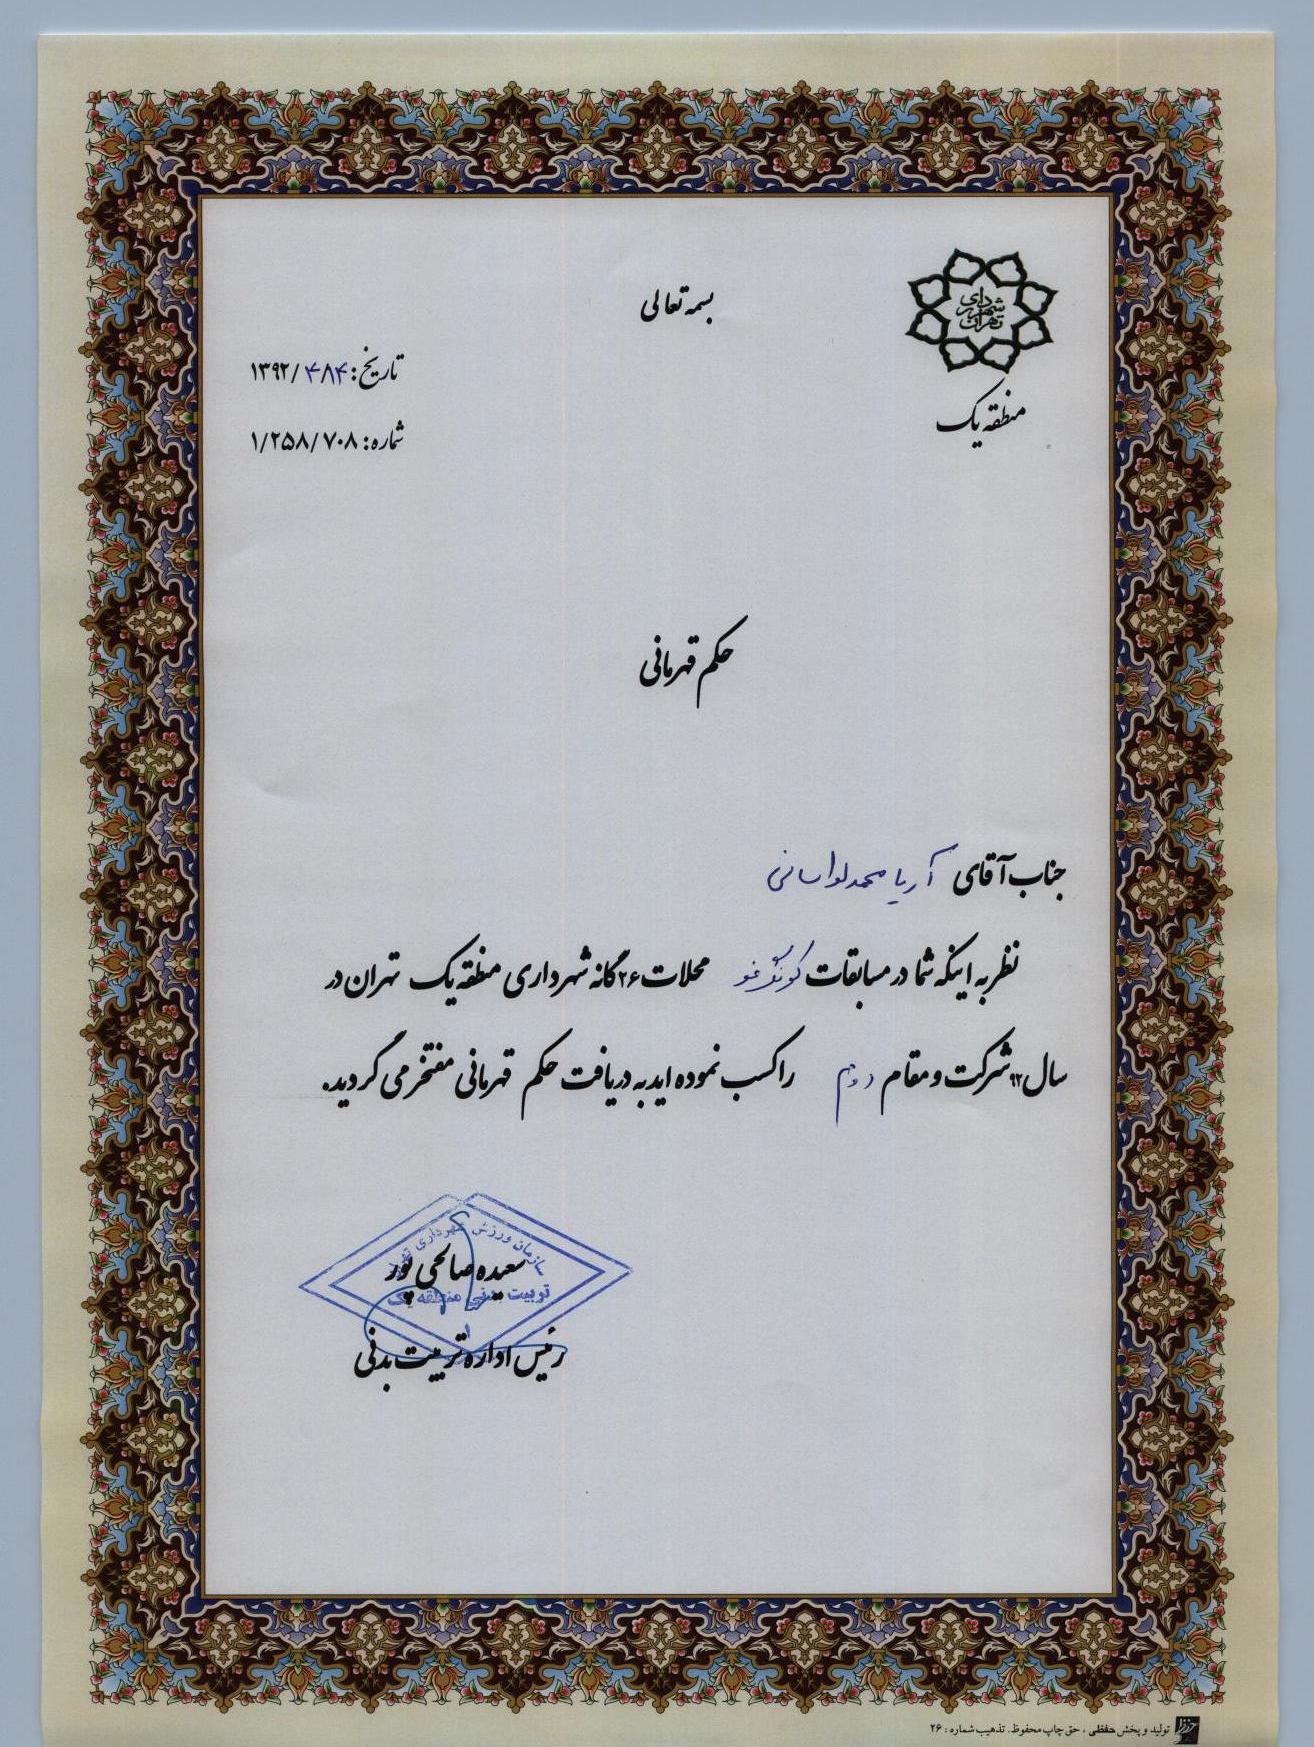 بسمه تعالی
شهرداری تهران
منطقه یک
تاریخ: ۱۳۹۲/
شماره: ۱/۲۵۸/۷۰۸
حکم قهرمانی
جناب آقای آریا محمد لواسانی
نظر به اینکه شما در مسابقات کونگ فو محلات ۲۶ گانه شهرداری منطقه یک تهران در
سال ۹۲ شرکت و مقام دوم را کسب نموده اید به دریافت حکم قهرمانی مفتخر می گردید.
سازمان ورزش شهرداری تهران
سعیده صالحی پور
تربیت بدنی منطقه یک
رئیس اداره تربیت بدنی
تولید و پخش حفظی ، حق چاپ محفوظ. تذهیب شماره : ۲۶